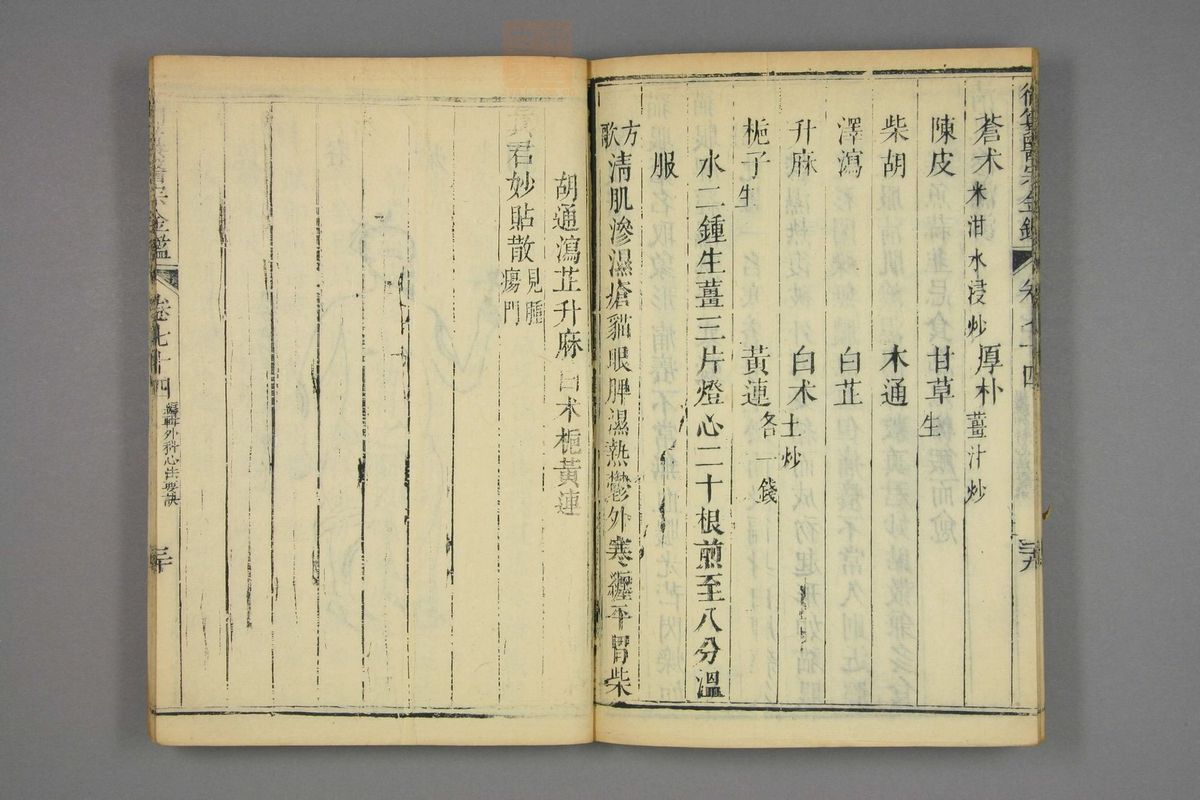 蒼术米泔水浸炒 厚朴薑汁炒
陳皮 甘草生
柴胡 木通
澤瀉 白芷
升麻 白术土炒
梔子生 黃連各一錢
水二鍾生薑三片燈心二十根煎至八分溫
服
方歌 清肌滲濕瘡貓眼脾濕熱鬱外寒纏平胃柴
胡通瀉芷升麻白术梔黃連
眞君妙貼散見腫瘍門
金鑑 卷七十四 編輯外科心法要訣 三十